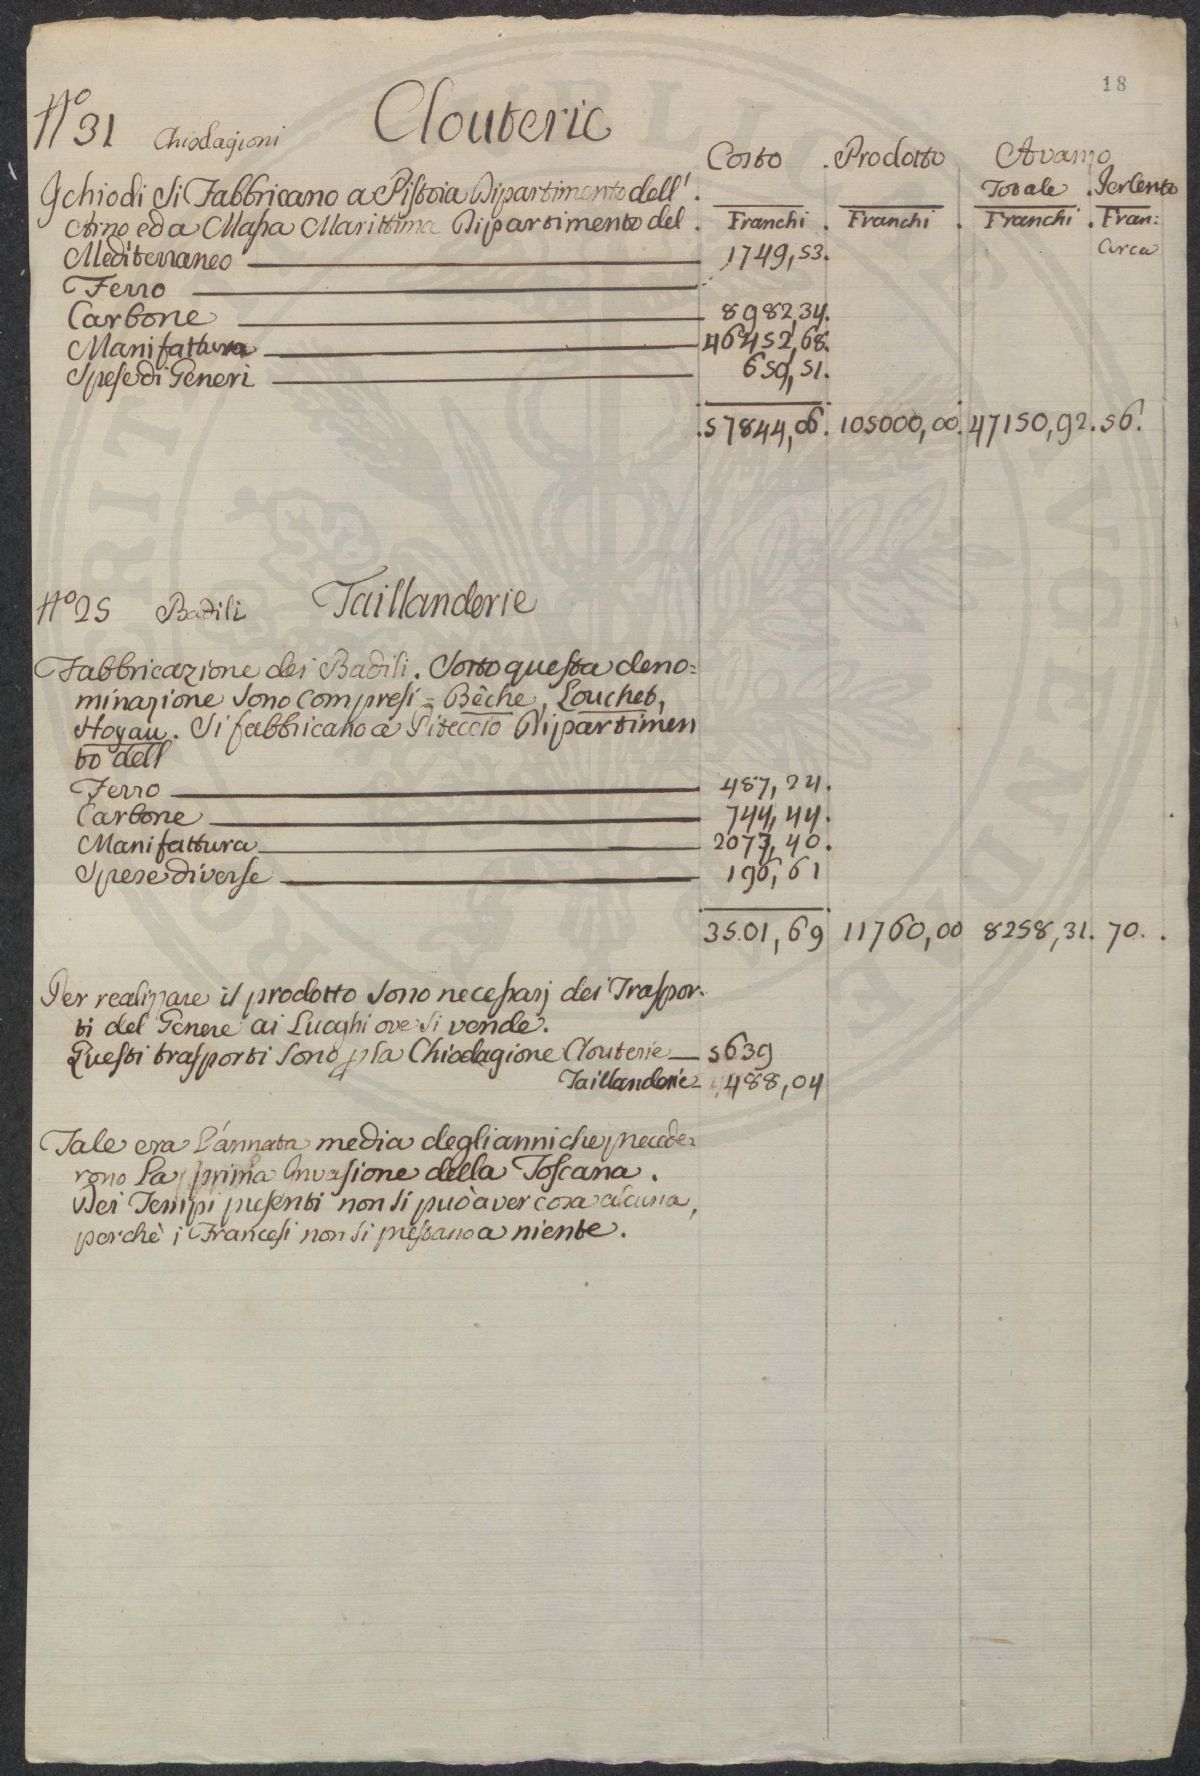 18
No 31 Chiodagioni Clouterie
Costo . Prodotto Avanzo
Totale . Per Cento
Franchi . Franchi . Franchi . Fran:
Circa
I chiodi si Fabbricano a Pistoia Dipartimento dell'
Arno ed a Massa Marittima Dipartimento del
Mediterraneo 1749,53.
Ferro
Carbone 8982,34.
Manifattura 46452,68.
Spese di Generi 659,51.
57844,06. 105000,00. 47150,92. 56.
No 25 Badili Taillanderie
Fabbricazione dei Badili. Sotto questa deno=
minazione sono compresi = Bêche, Louchet,
Hoyau. Si fabbricano a Piteccio Dipartimen
to dell
Ferro 487,24.
Carbone 744,44.
Manifattura 2073,40.
Spese diverse 196,61
3501,69 11760,00 8258,31. 70. .
Per realizzare il prodotto sono necessarj dei Traspor-
ti del Genere ai Luoghi ove si vende.
Questi trasporti sono p la Chiodagione Clouterie 5639
Taillanderie 488,04
Tale era l'annata media degli anni che precede=
rono la prima Invasione della Toscana.
Dei Tempi presenti non si può aver cosa alcuna,
perchè i Francesi non si prestano a niente.